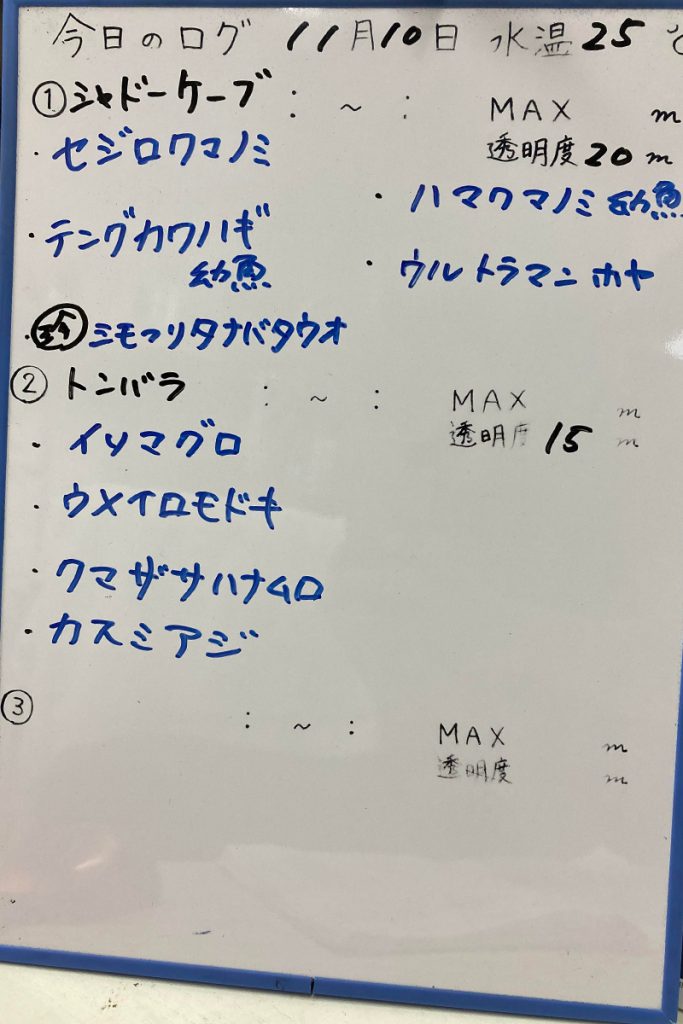 今日のログ 11月10日 水温25℃
①シャドーケーブ : ~ : MAX m
透明度20m
・セジロクマノミ
・ハマクマノミ幼魚
・テングカワハギ
幼魚
・ウルトラマンホヤ
・珍ミモツリタナバタウオ
②トンバラ : ~ : MAX m
透明度15m
・イソマグロ
・ウメイロモドキ
・クマザサハナムロ
・カスミアジ
③ : ~ : MAX m
透明度 m